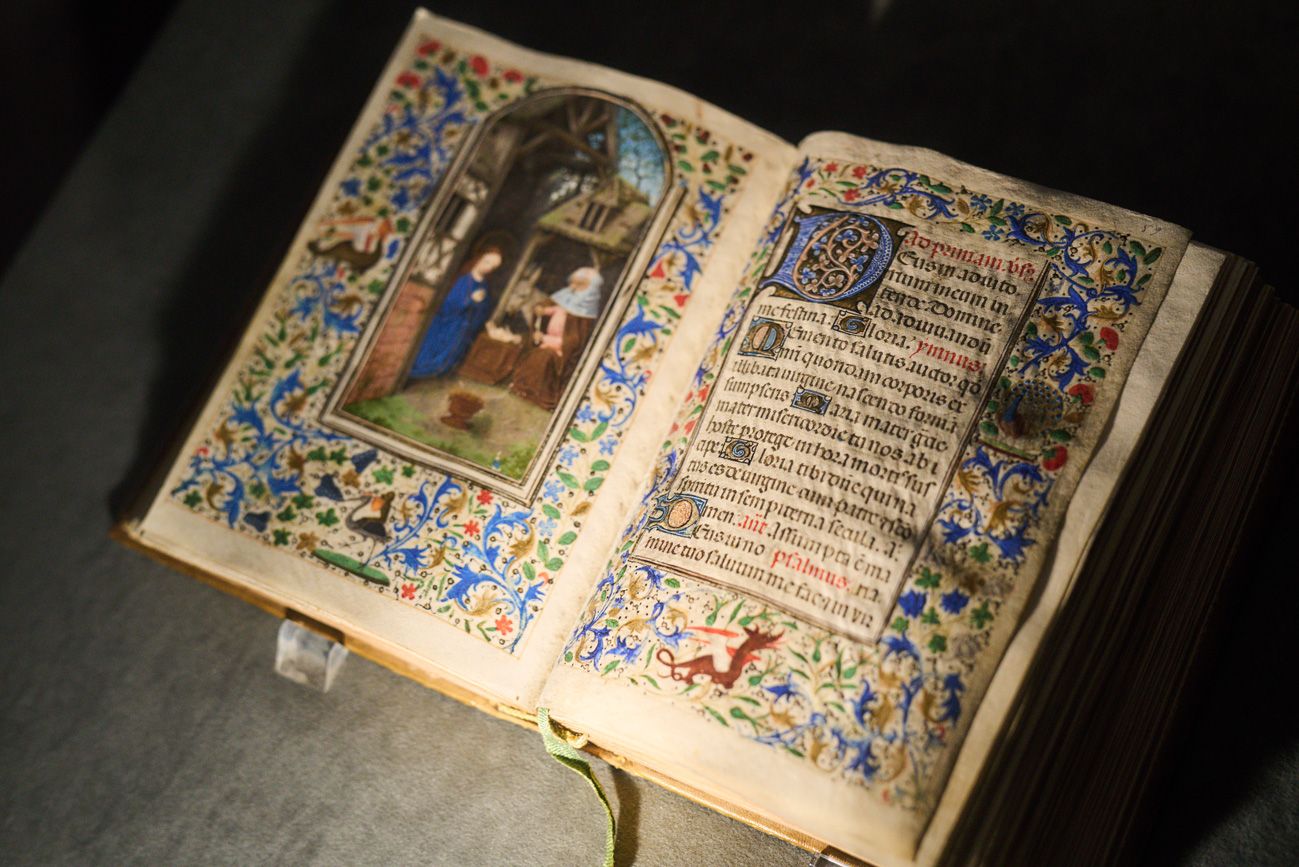 ad primam. vs.
Deus in adiuto
rium meum in
tende Domine
ad adiuuandū
me festina Gloria. ymnus.
Memento salutis auctor qd
nri quondam corporis ex
illibata virgine nascendo formā
sumpseris Maria mater grāe
mater misericordie tu nos ab i
hoste protege in hora mortis sus
cipe Gloria tibi dñe qui na
tus es de virgine cum patre et scō
spiritu in sempiterna secula. a
men. añt. assumpta ē ma
Deus in no psalmus. ria
mine tuo saluum me fac in vir